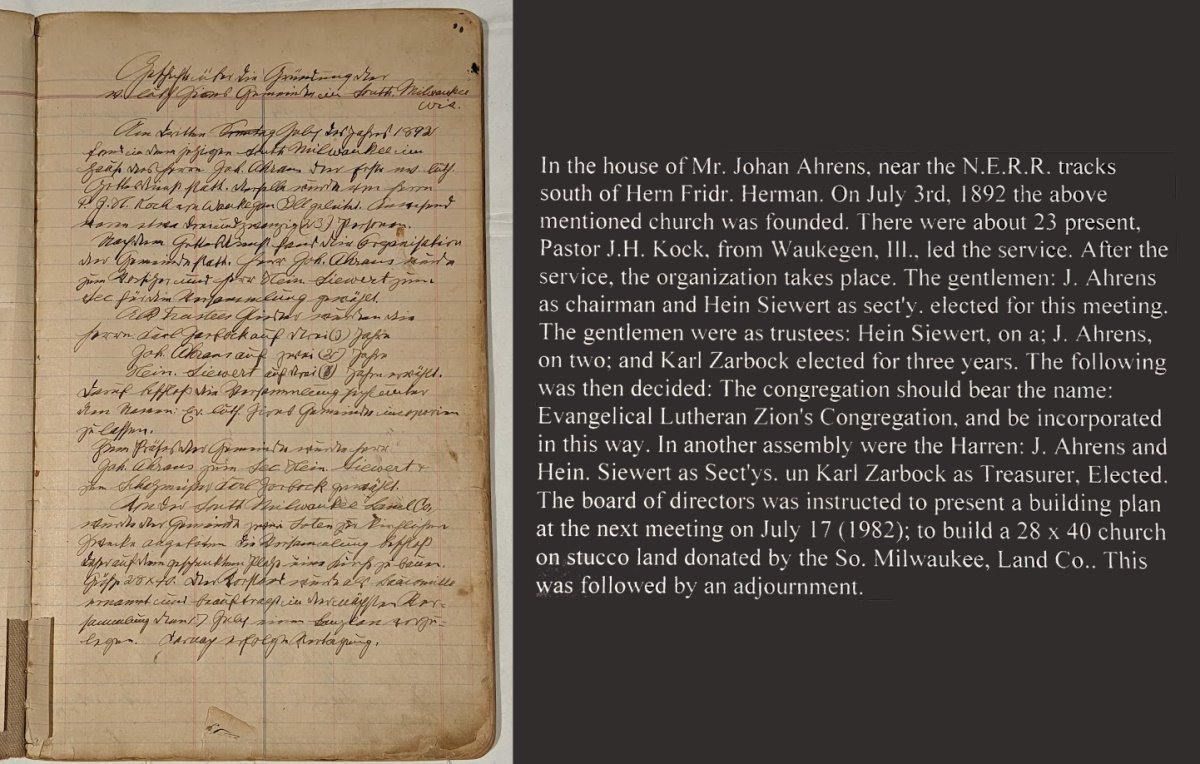 über die Gründung der
ev. luth Zions Gemeinde in South. Milwaukee
Wis.
Am dritten Sonntag July des Jahres 1892
fand in dem jetzigen South Milwaukee im
Hause des Herrn Joh. Ahrens der erste ev. luth.
Gottesdienst statt. derselbe wurde von Herrn
P. J. H. Kock von Waukegen Ill geleitet. Anwesend
waren etwa dreiundzwanzig (23) Personen.
Nach dem Gottesdienst fand die Organisation
der Gemeinde statt. Herr Joh. Ahrens wurde
zum Vorsitzer und Herr Hein. Siewert zum
Sec für die Versammlung gewählt.
Als Trustees wurden die
Herrn Karl Zarbock auf drei Jahre
Joh. Ahrens auf zwei (2) Jahre
Hein. Siewert auf Jahre erwählt.
Darauf beschloß die Versammlung sich unter
dem Namen: Ev. luth Zions Gemeinde
zu lassen.
Zum Präses der Gemeinde wurde Herr
Joh. Ahrens zum Sec Hein. Siewert +
zum Schatzmeister Karl Zarbock gewählt.
Von der South Milwaukee Land Co,
wurde der Gemeinde zwei Loten zu kirchlichen
Zwecke angeboten die Versammlung beschloß
auf dem geschenkten Platze eine Kirche zu bauen.
Größe 28 x 40. Der Vorstand wurde als
ernannt und beauftragt in der nächsten Ver-
sammlung den 17 July einen Bauplan vorzu-
legen. Darauf erfolgte Vertagung.
In the house of Mr. Johan Ahrens, near the N.E.R.R. tracks
south of Hern Fridr. Herman. On July 3rd, 1892 the above
mentioned church was founded. There were about 23 present,
Pastor J.H. Kock, from Waukegen, Ill., led the service. After the
service, the organization takes place. The gentlemen: J. Ahrens
as chairman and Hein Siewert as sect'y. elected for this meeting.
The gentlemen were as trustees: Hein Siewert, on a; J. Ahrens,
on two; and Karl Zarbock elected for three years. The following
was then decided: The congregation should bear the name:
Evangelical Lutheran Zion's Congregation, and be incorporated
in this way. In another assembly were the Harren: J. Ahrens and
Hein. Siewert as Sect'ys. un Karl Zarbock as Treasurer, Elected.
The board of directors was instructed to present a building plan
at the next meeting on July 17 (1982); to build a 28 x 40 church
on stucco land donated by the So. Milwaukee, Land Co.. This
was followed by an adjournment.